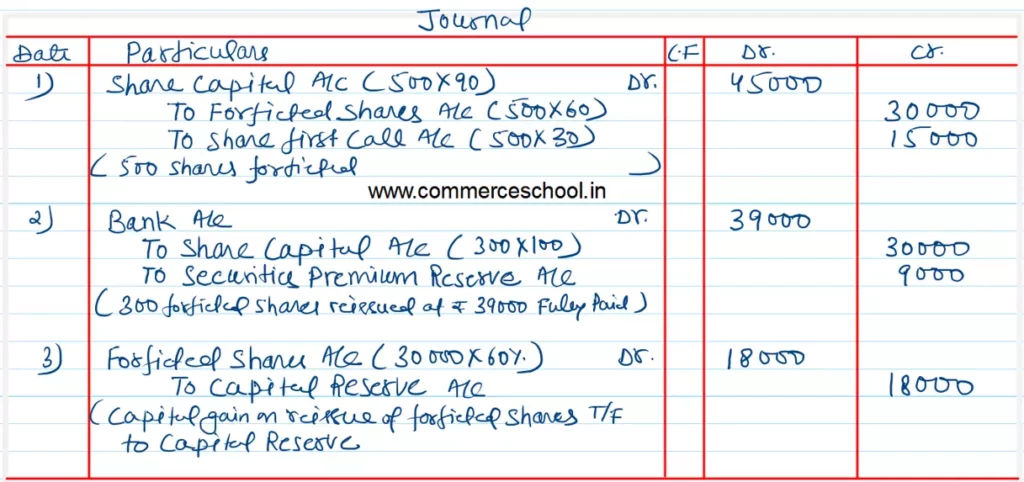 Journal
Date Particulars C.F Dr. Cr.
1) Share Capital A/c (500X90) Dr. 45000
To Forficted Shares A/c (500X60) 30000
To Share first Call A/c (500X30) 15000
(500 shares forficted)
www.commerceschool.in
2) Bank A/c Dr. 39000
To Share Capital A/c (300X100) 30000
To Securities Premium Reserve A/c 9000
(300 forficted shares reissued at ₹ 39000 Fuley Paid)
3) Forficted Shares A/c (30000X60%) Dr. 18000
To Capital Reserve A/c 18000
(Capital gain on reissue of forficted shares T/F
to Capital Reserve